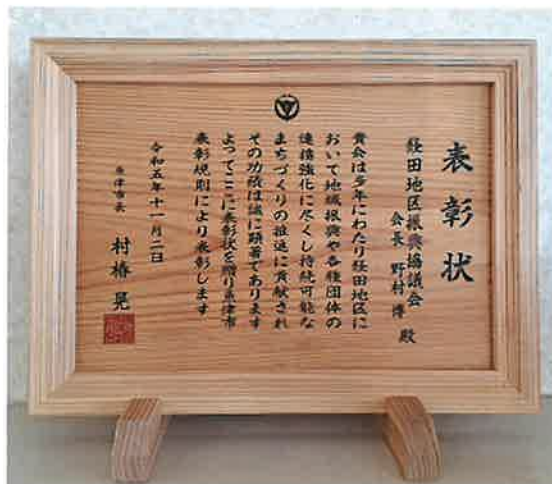 表彰状
経田地区振興協議会
会長 野村 博 殿
貴会は多年にわたり経田地区に
おいて地域振興や各種団体の
連携強化に尽くし持続可能な
まちづくりの推進に貢献され
その功績は誠に顕著であります
よってここに表彰状を贈り魚津市
表彰規則により表彰します
令和五年十一月二日
魚津市長
村椿 晃